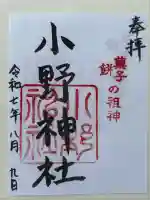 奉拝
菓子の祖神
餅
小野神社
令和七年八月九日